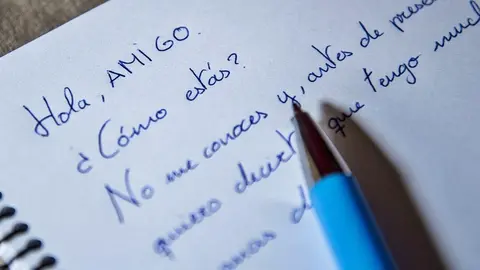 Hola, AMIGO.
¿Cómo estás?
No me conoces y, antes de
quiero decirte que tengo